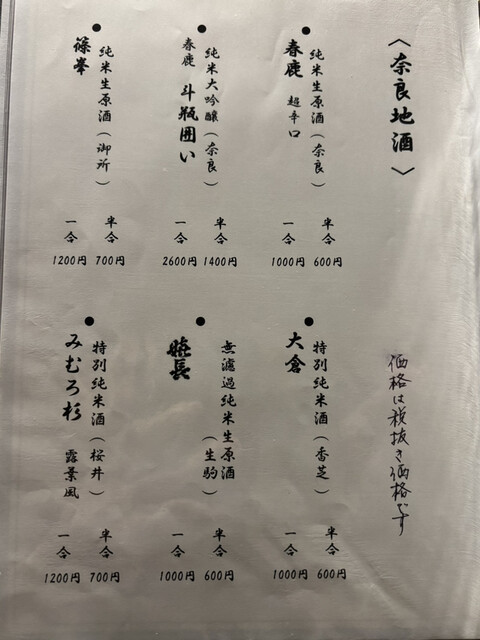 〈奈良地酒〉
価格は税抜き価格です
●純米生原酒（奈良）
春鹿 超辛口
半合 600円
一合 1000円
●純米大吟醸（奈良）
春鹿 斗瓶囲い
半合 1400円
一合 2600円
●純米生原酒（御所）
篠峯
半合 700円
一合 1200円
●特別純米酒（香芝）
大倉
半合 600円
一合 1000円
●無濾過純米生原酒
（生駒）
嬉長
半合 600円
一合 1000円
●特別純米酒（桜井）
みむろ杉 露葉風
半合 700円
一合 1200円